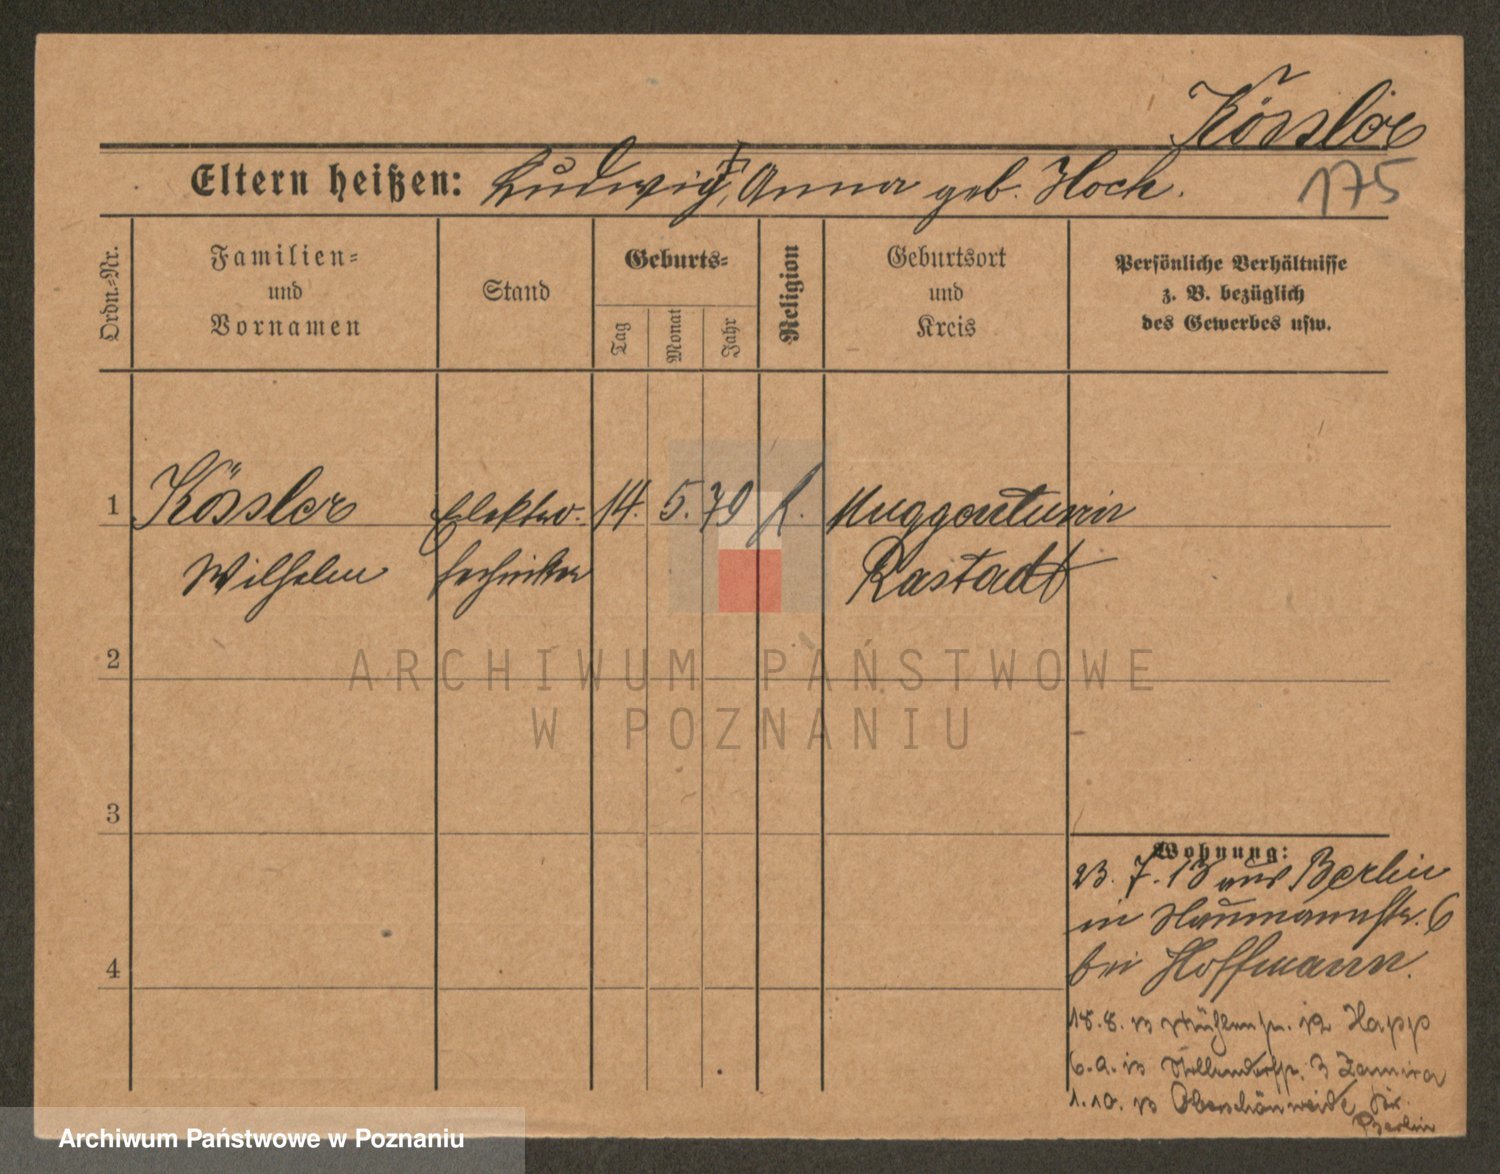 Kössler
175
Eltern heißen: Ludwig, Anna geb. Hock.
Ordn.-Nr.
Familien-
und
Vornamen
Stand
Geburts-
Tag
Monat
Jahr
Religion
Geburtsort
und
Kreis
Persönliche Verhältnisse
z. B. bezüglich
des Gewerbes usw.
1 Kössler Elektro- 14. 5. 79 k. Muggensturm
Wilhelm techniker Rastadt
2
ARCHIWUM PAŃSTWOWE
W POZNANIU
3
Wohnung:
23. 7. 13 aus Berlin
in Naumannstr. 6
4
bei Hoffmann.
18.8. n 12 Happ
6.9. n 3
1.10. n Oberschönweide Kr.
Berlin
Archiwum Państwowe w Poznaniu